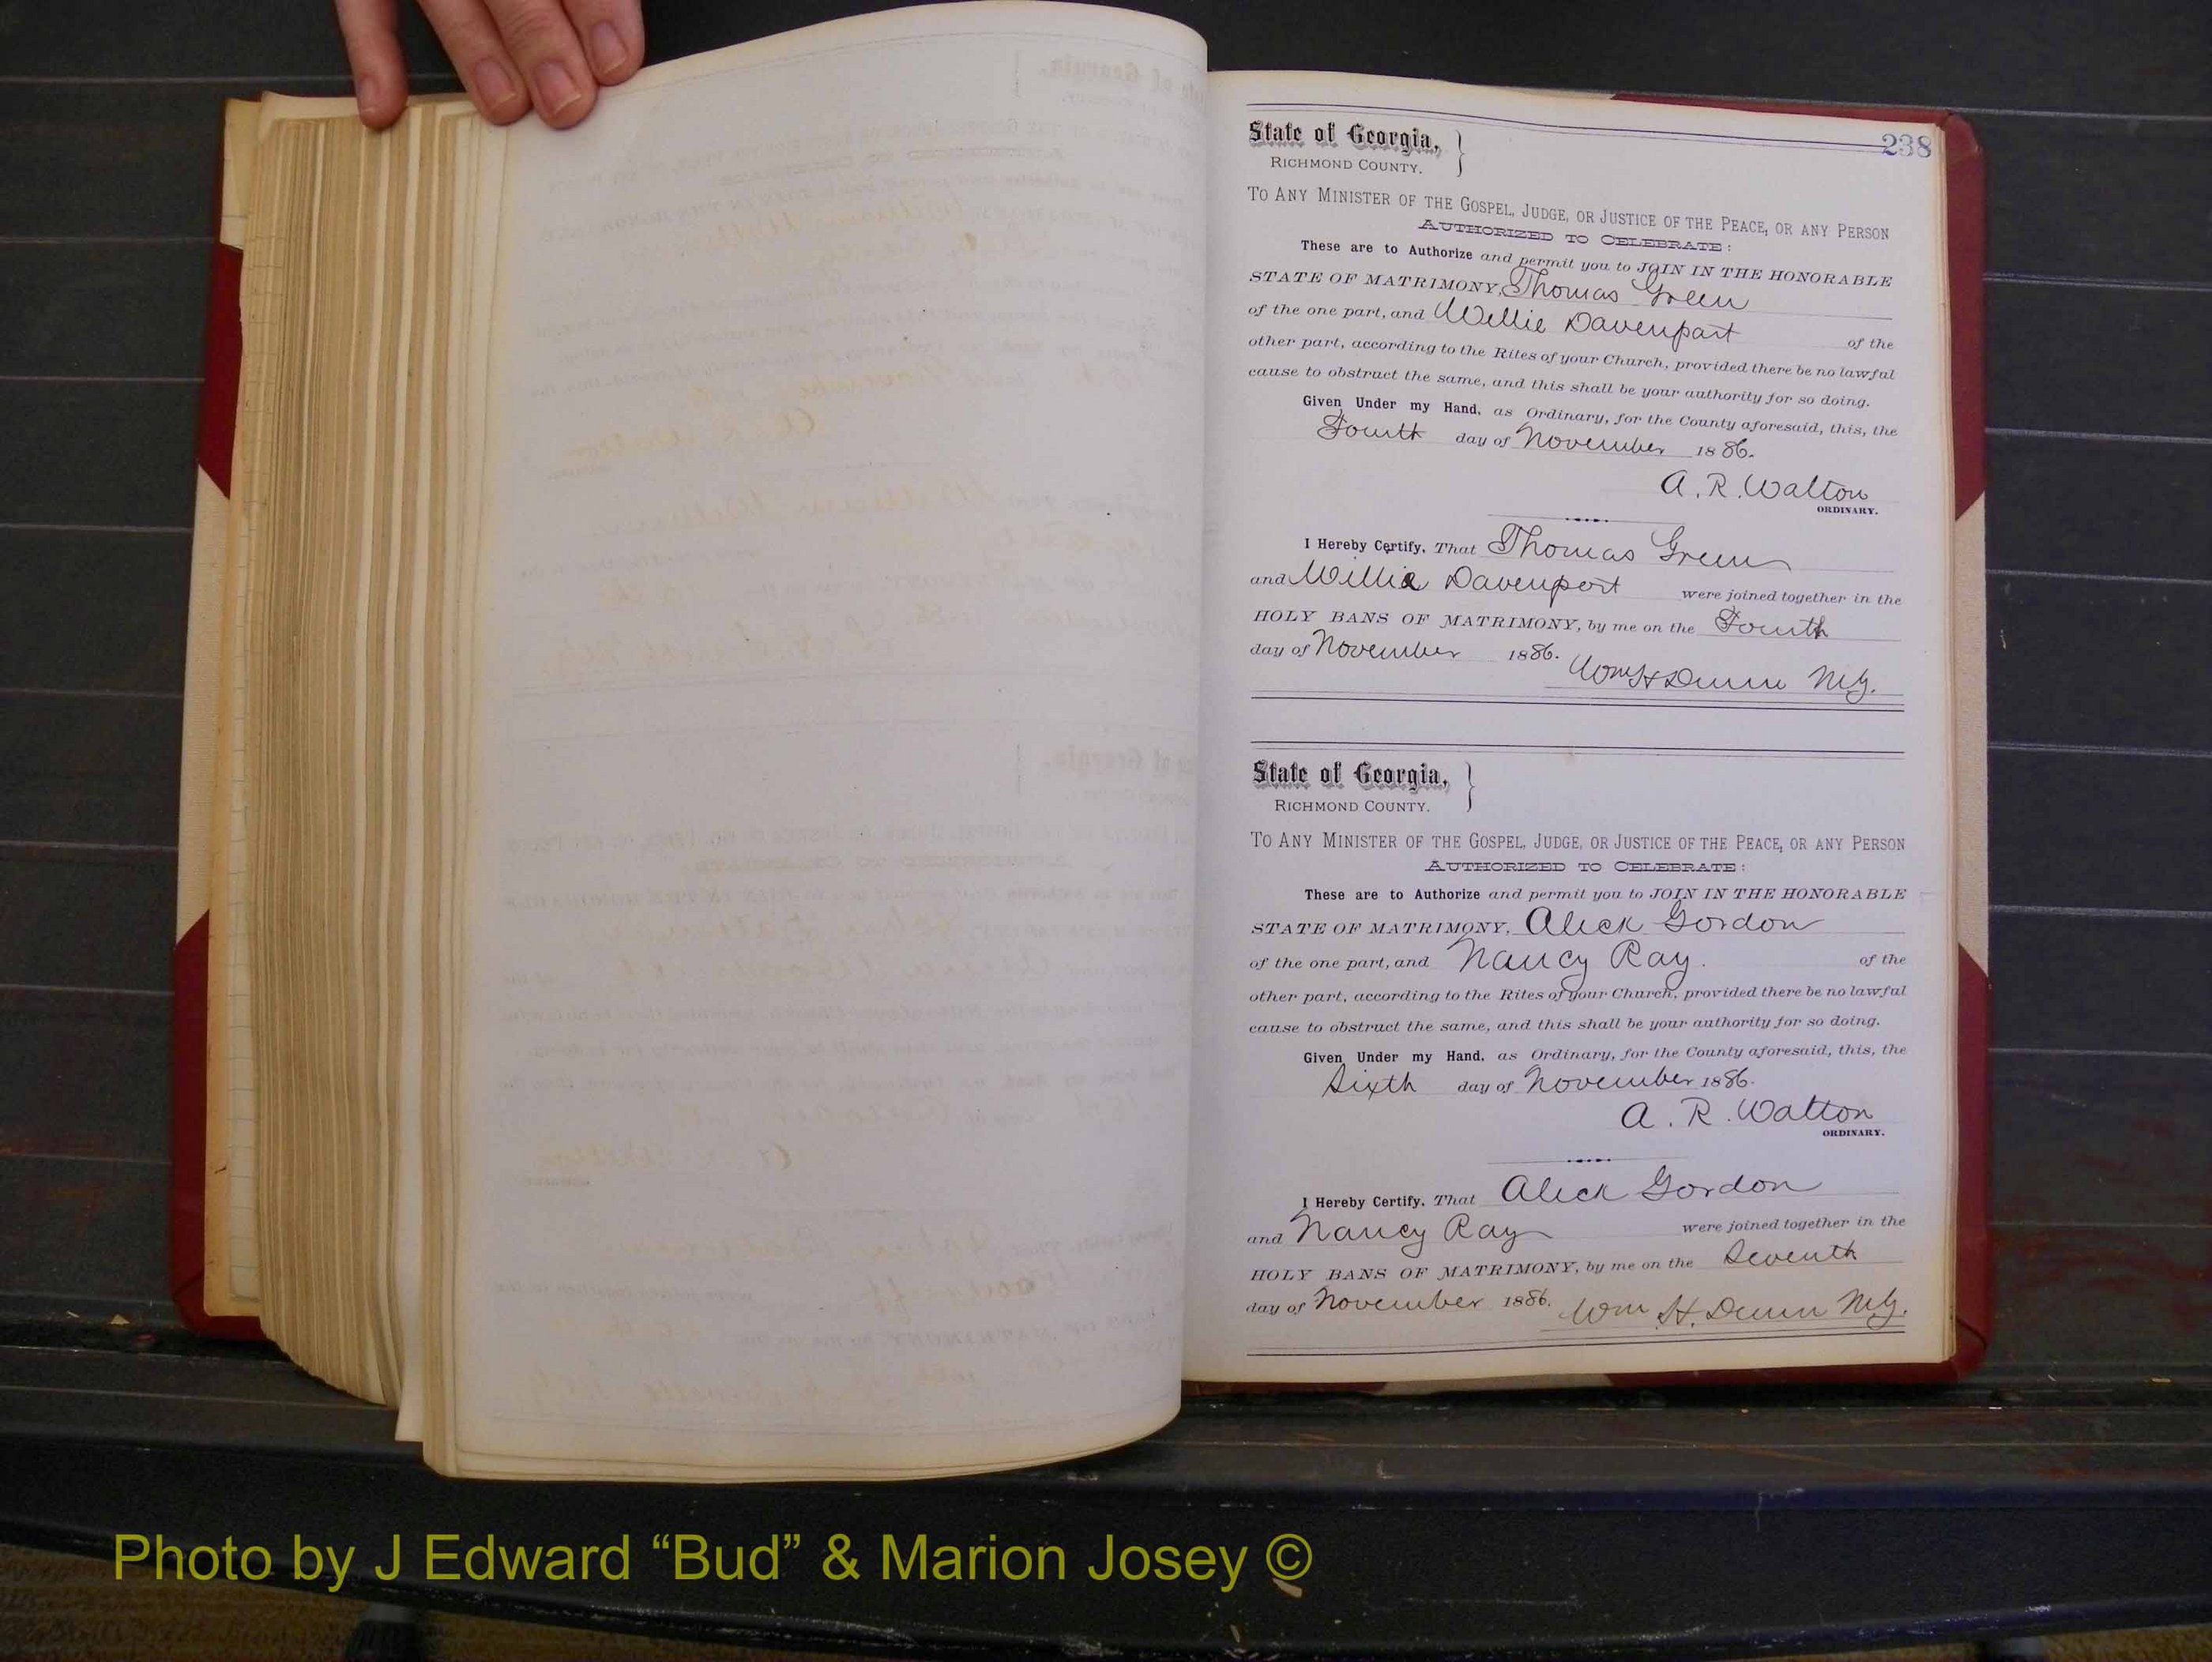 238
State of Georgia,
RICHMOND COUNTY.
TO ANY MINISTER OF THE GOSPEL, JUDGE, OR JUSTICE OF THE PEACE, OR ANY PERSON
AUTHORIZED TO CELEBRATE:
These are to Authorize and permit you to JOIN IN THE HONORABLE
STATE OF MATRIMONY, Thomas Green
of the one part, and Willie Davenpart of the
other part, according to the Rites of your Church, provided there be no lawful
cause to obstruct the same, and this shall be your authority for so doing.
Given Under my Hand, as Ordinary, for the County aforesaid, this, the
Fourth day of November 1886.
A. R. Walton
ORDINARY.
I Hereby Certify, That Thomas Green
and Willie Davenport were joined together in the
HOLY BANS OF MATRIMONY, by me on the Fourth
day of November 1886.
Wm H Dunn M.G.
State of Georgia,
RICHMOND COUNTY.
TO ANY MINISTER OF THE GOSPEL, JUDGE, OR JUSTICE OF THE PEACE, OR ANY PERSON
AUTHORIZED TO CELEBRATE:
These are to Authorize and permit you to JOIN IN THE HONORABLE
STATE OF MATRIMONY, Alick Gordon
of the one part, and Nancy Ray. of the
other part, according to the Rites of your Church, provided there be no lawful
cause to obstruct the same, and this shall be your authority for so doing.
Given Under my Hand, as Ordinary, for the County aforesaid, this, the
Sixth day of November 1886.
A. R. Walton
ORDINARY.
I Hereby Certify, That Alick Gordon
and Nancy Ray were joined together in the
HOLY BANS OF MATRIMONY, by me on the Seventh
day of November 1886. Wm H. Dunn M.G.
Photo by J Edward “Bud” & Marion Josey ©